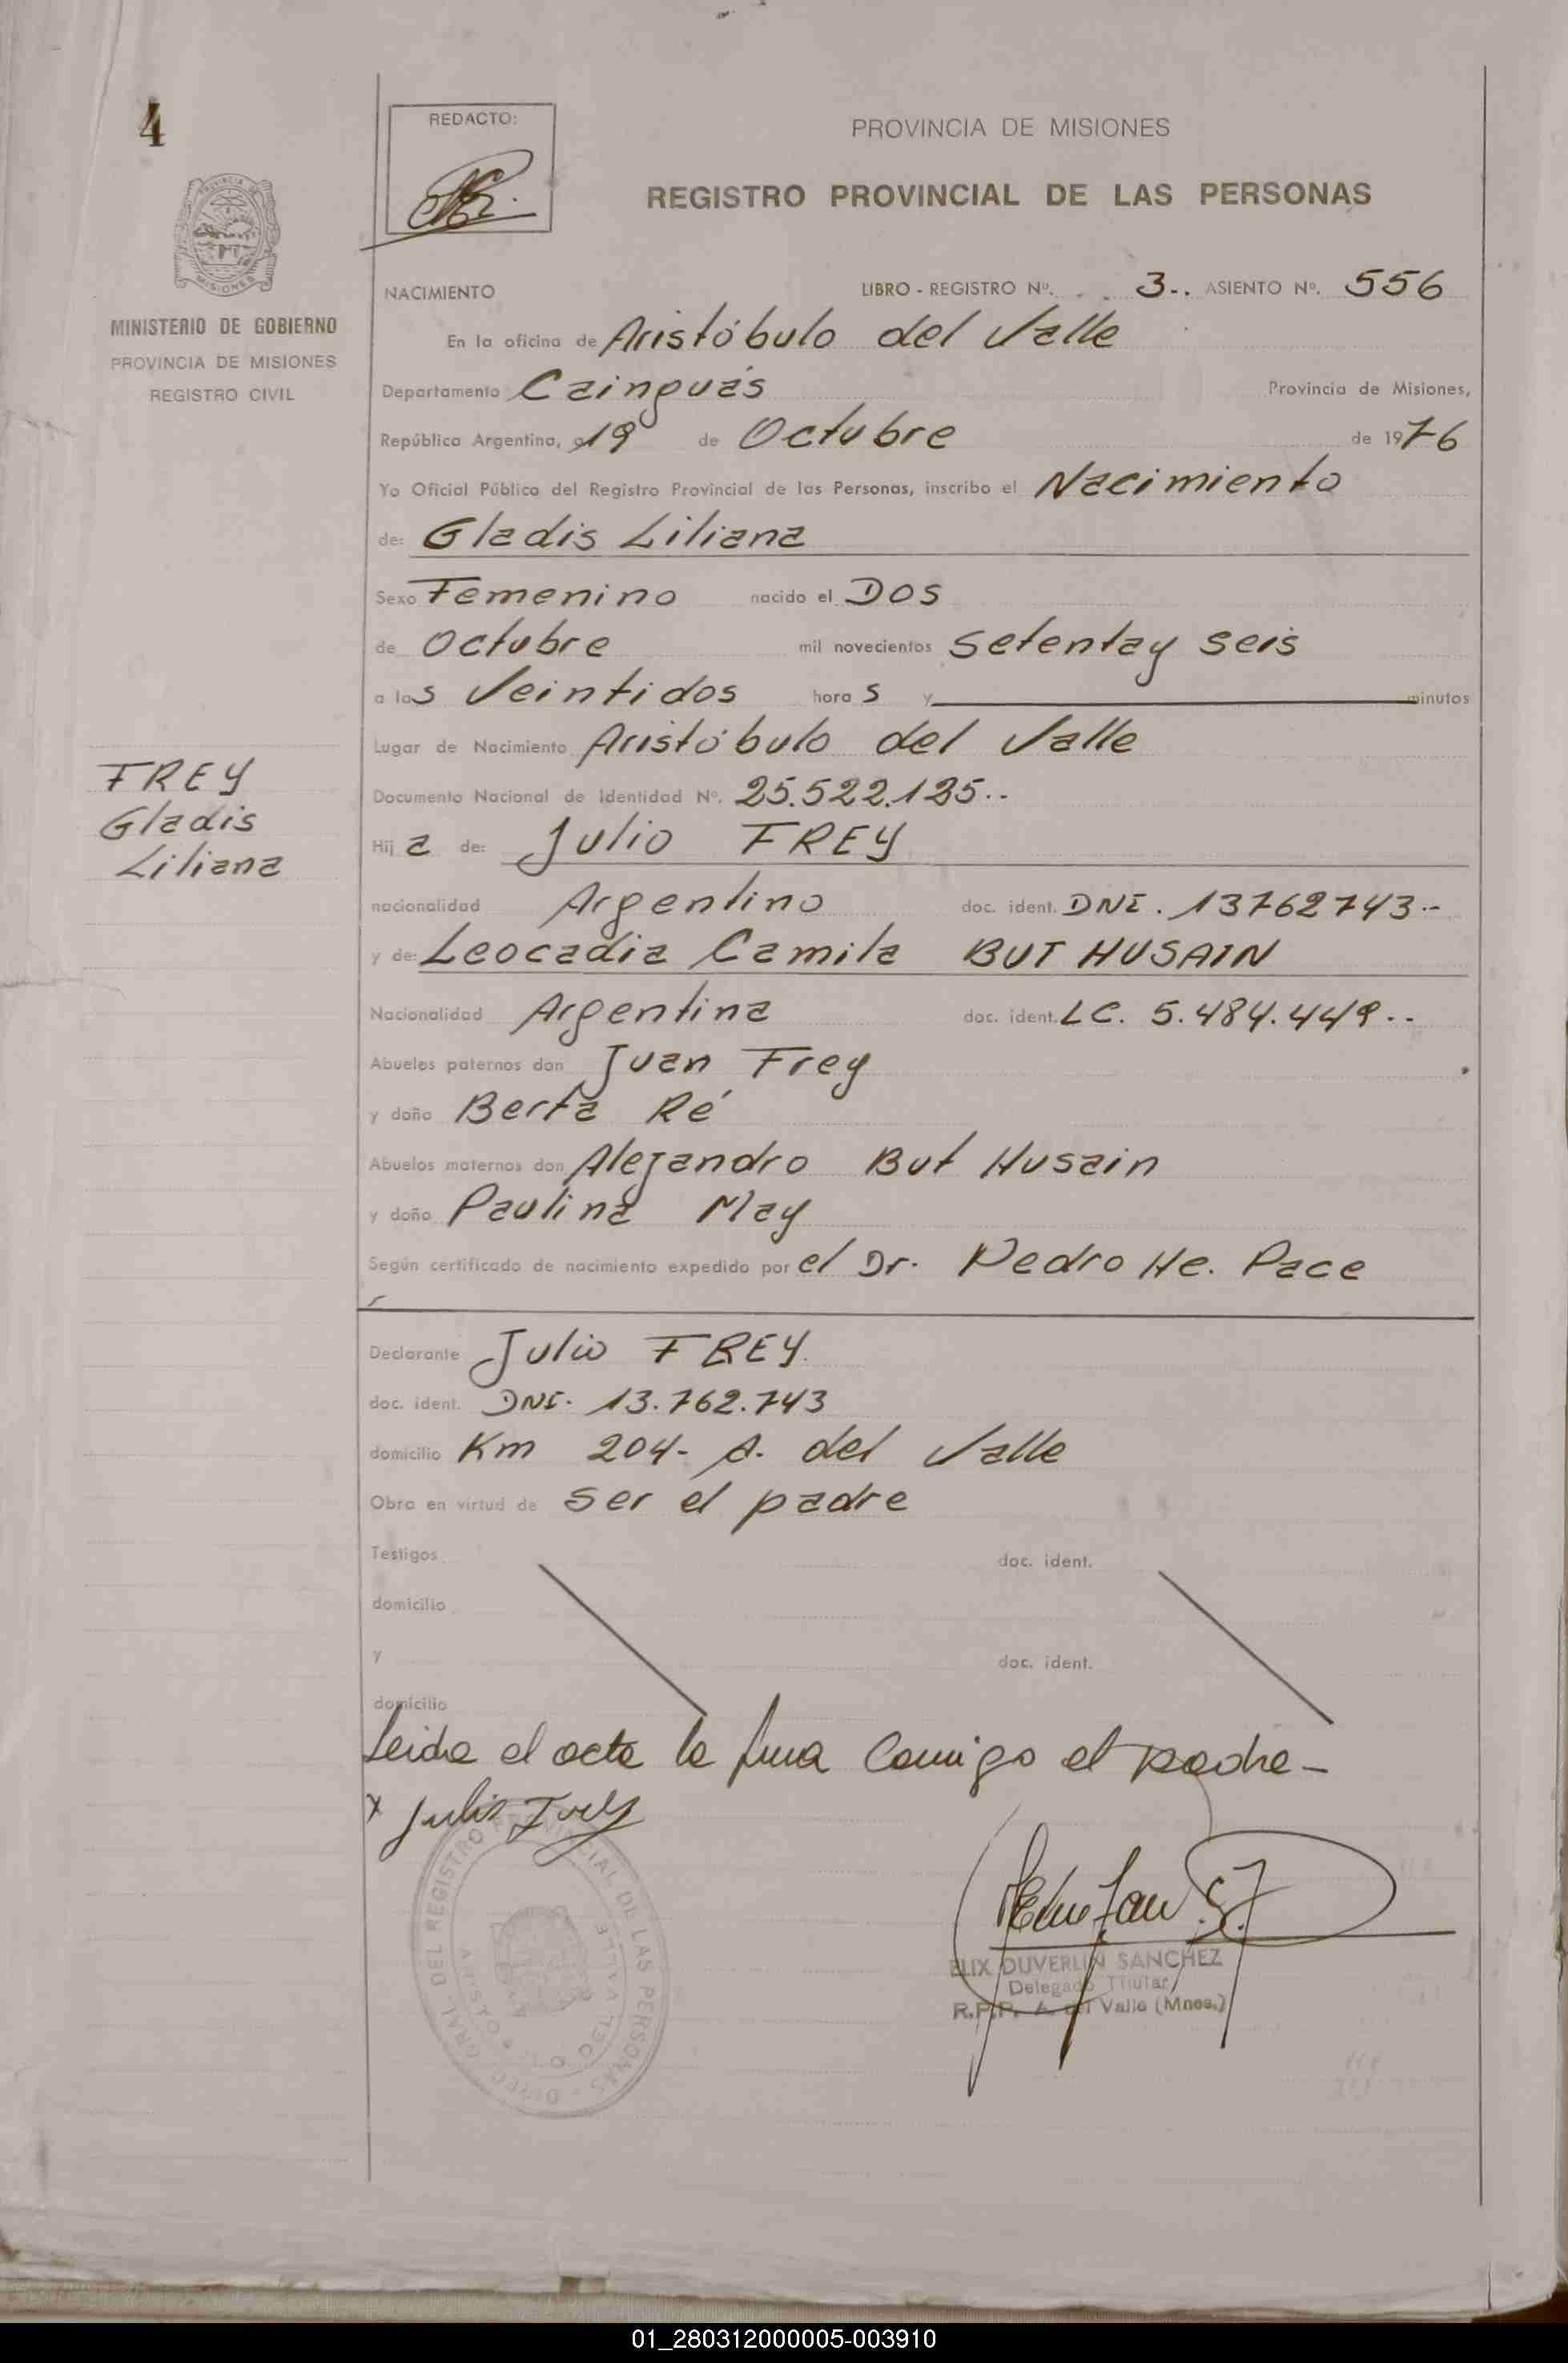 4
REDACTO:
PROVINCIA DE MISIONES
REGISTRO PROVINCIAL DE LAS PERSONAS
PROVINCIA DE
MISIONES
MINISTERIO DE GOBIERNO
PROVINCIA DE MISIONES
REGISTRO CIVIL
NACIMIENTO LIBRO - REGISTRO Nº. 3-. ASIENTO Nº. 556
En la oficina de Aristóbulo del Valle
Departamento Cainguás Provincia de Misiones,
República Argentina, a 19 de Octubre de 1976
Yo Oficial Público del Registro Provincial de las Personas, inscribo el Nacimiento
de: Gladis Liliana
Sexo Femenino nacido el DOS
de Octubre mil novecientos setenta y seis
a las Veintidos horas y minutos
Lugar de Nacimiento Aristóbulo del Valle
Documento Nacional de Identidad Nº. 25.522.125..
FREY
Gladis
Liliana
Hija de: Julio FREY
nacionalidad Argentino doc. ident. DNI. 13762743.-
y de: Leocadia Camila BUT HUSAIN
Nacionalidad Argentina doc. ident. LC. 5.484.449..
Abuelos paternos don Juan Frey
y doña Berta Ré
Abuelos maternos don Alejandro But Husain
y doña Paulina May
Según certificado de nacimiento expedido por el Dr. Pedro He. Pace
Declarante Julio FREY.
doc. ident. DNI. 13.762.743
domicilio Km 204- A. del Valle
Obra en virtud de ser el padre
Testigos doc. ident.
domicilio
y doc. ident.
domicilio
Leida el acta la firma Conmigo el padre-
x Julio Frey
DIREC. GRAL. DEL REGISTRO PROVINCIAL DE LAS PERSONAS
DEL VALLE
ELIX DUVERLIN SANCHEZ
Delegado Titular
R.P.P. A. del Valle (Mnes.)
01_280312000005-003910